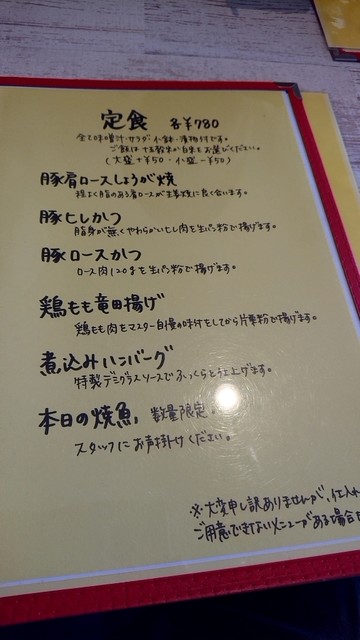 定食 各¥780
全て味噌汁・サラダ・小鉢・漬物付です。
ご飯は十五穀米か白米をお選びください。
(大盛+¥50・小盛-¥50)
豚肩ロースしょうが焼
程よく脂のある肩ロースが生姜焼に良く合います。
豚ヒレかつ
脂身が無くやわらかいヒレ肉を生パン粉で揚げます。
豚ロースかつ
ロース肉120gを生パン粉で揚げます。
鶏もも竜田揚げ
鶏もも肉をマスター自慢の味付をしてから片栗粉で揚げます。
煮込みハンバーグ
特製デミグラスソースでふっくらと仕上げます。
本日の焼魚, 数量限定。
スタッフにお声掛けください。
※大変申し訳ありませんが、仕入れ
ご用意できないメニューがある場合